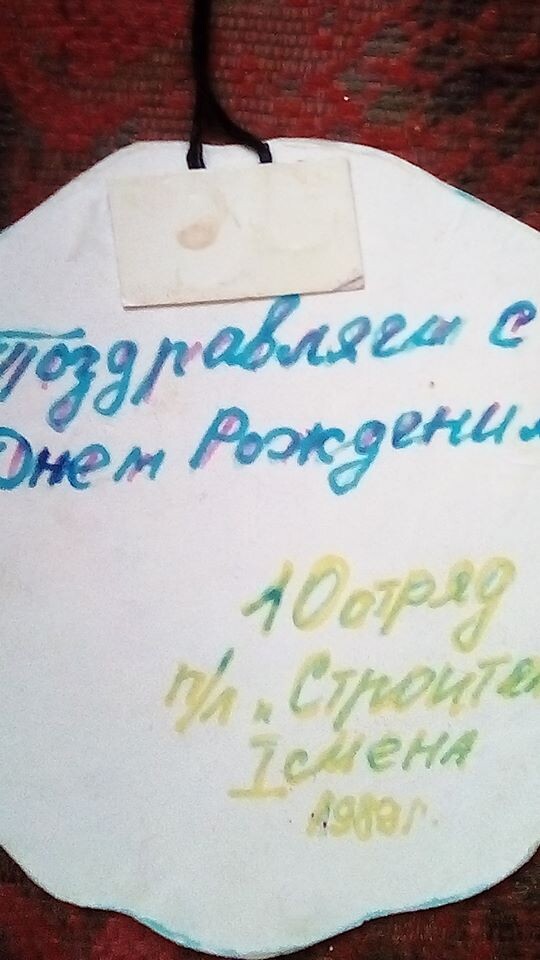 Поздравляем с
Днем Рождения
10 отряд
п/л „Строител
I смена
1989г.